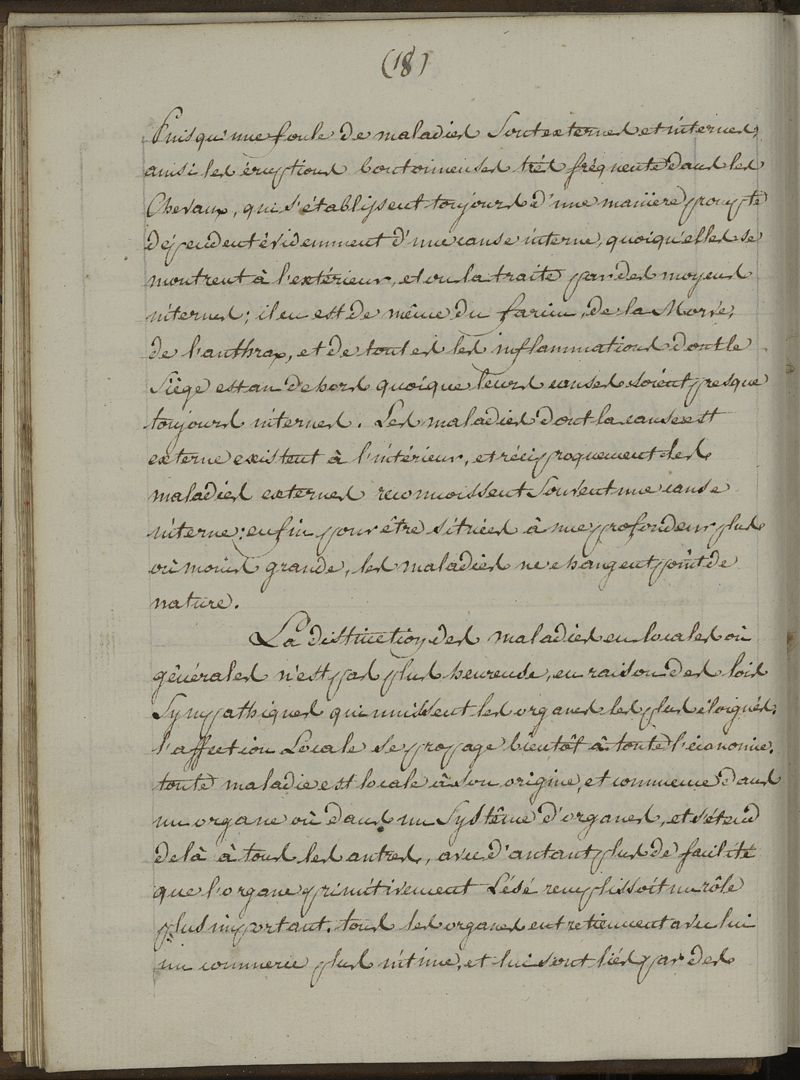 (18)
Puisqu'une foule de maladies sont externes et internes,
ainsi les éruptions boutonneuses très fréquente dans les
Chevaux, qui s'établissent toujours d'une manière prompte
dépendent évidemment d'une cause interne, quoiqu'elles se
montrent à l'extérieur, et on la traite par des moyens
internes; il en est de même du farcin, de la Morve,
de l'anthrax, et de toutes les inflammations dont le
siége est au dehors quoique leurs causes soient presque
toujours internes. Les maladies dont la cause est
externe existent à l'intérieur, et réciproquement les
maladies externes reconnoissent souvent une cause
interne; enfin pour être situées à une profondeur plus
où moins grande, les maladies ne changent point de
nature.
La distinction des maladies en locales où
générales n'est pas plus heureuse, en raison des lois
Sympathiques qui unissent les organes les plus éloignés;
l'affection Locale se propage bientôt à toute l'économie.
toute maladie est locale à son origine, et commence dans
un organe où dans un Systême d'organes, et s'étend
delà à tous les autres, avec d'autant plus de facilité
que l'organe primitivement Lésé remplissoit un rôle
plus important. tous les organes entretiennent avec lui
un commerce plus intime, et lui sont liés par des